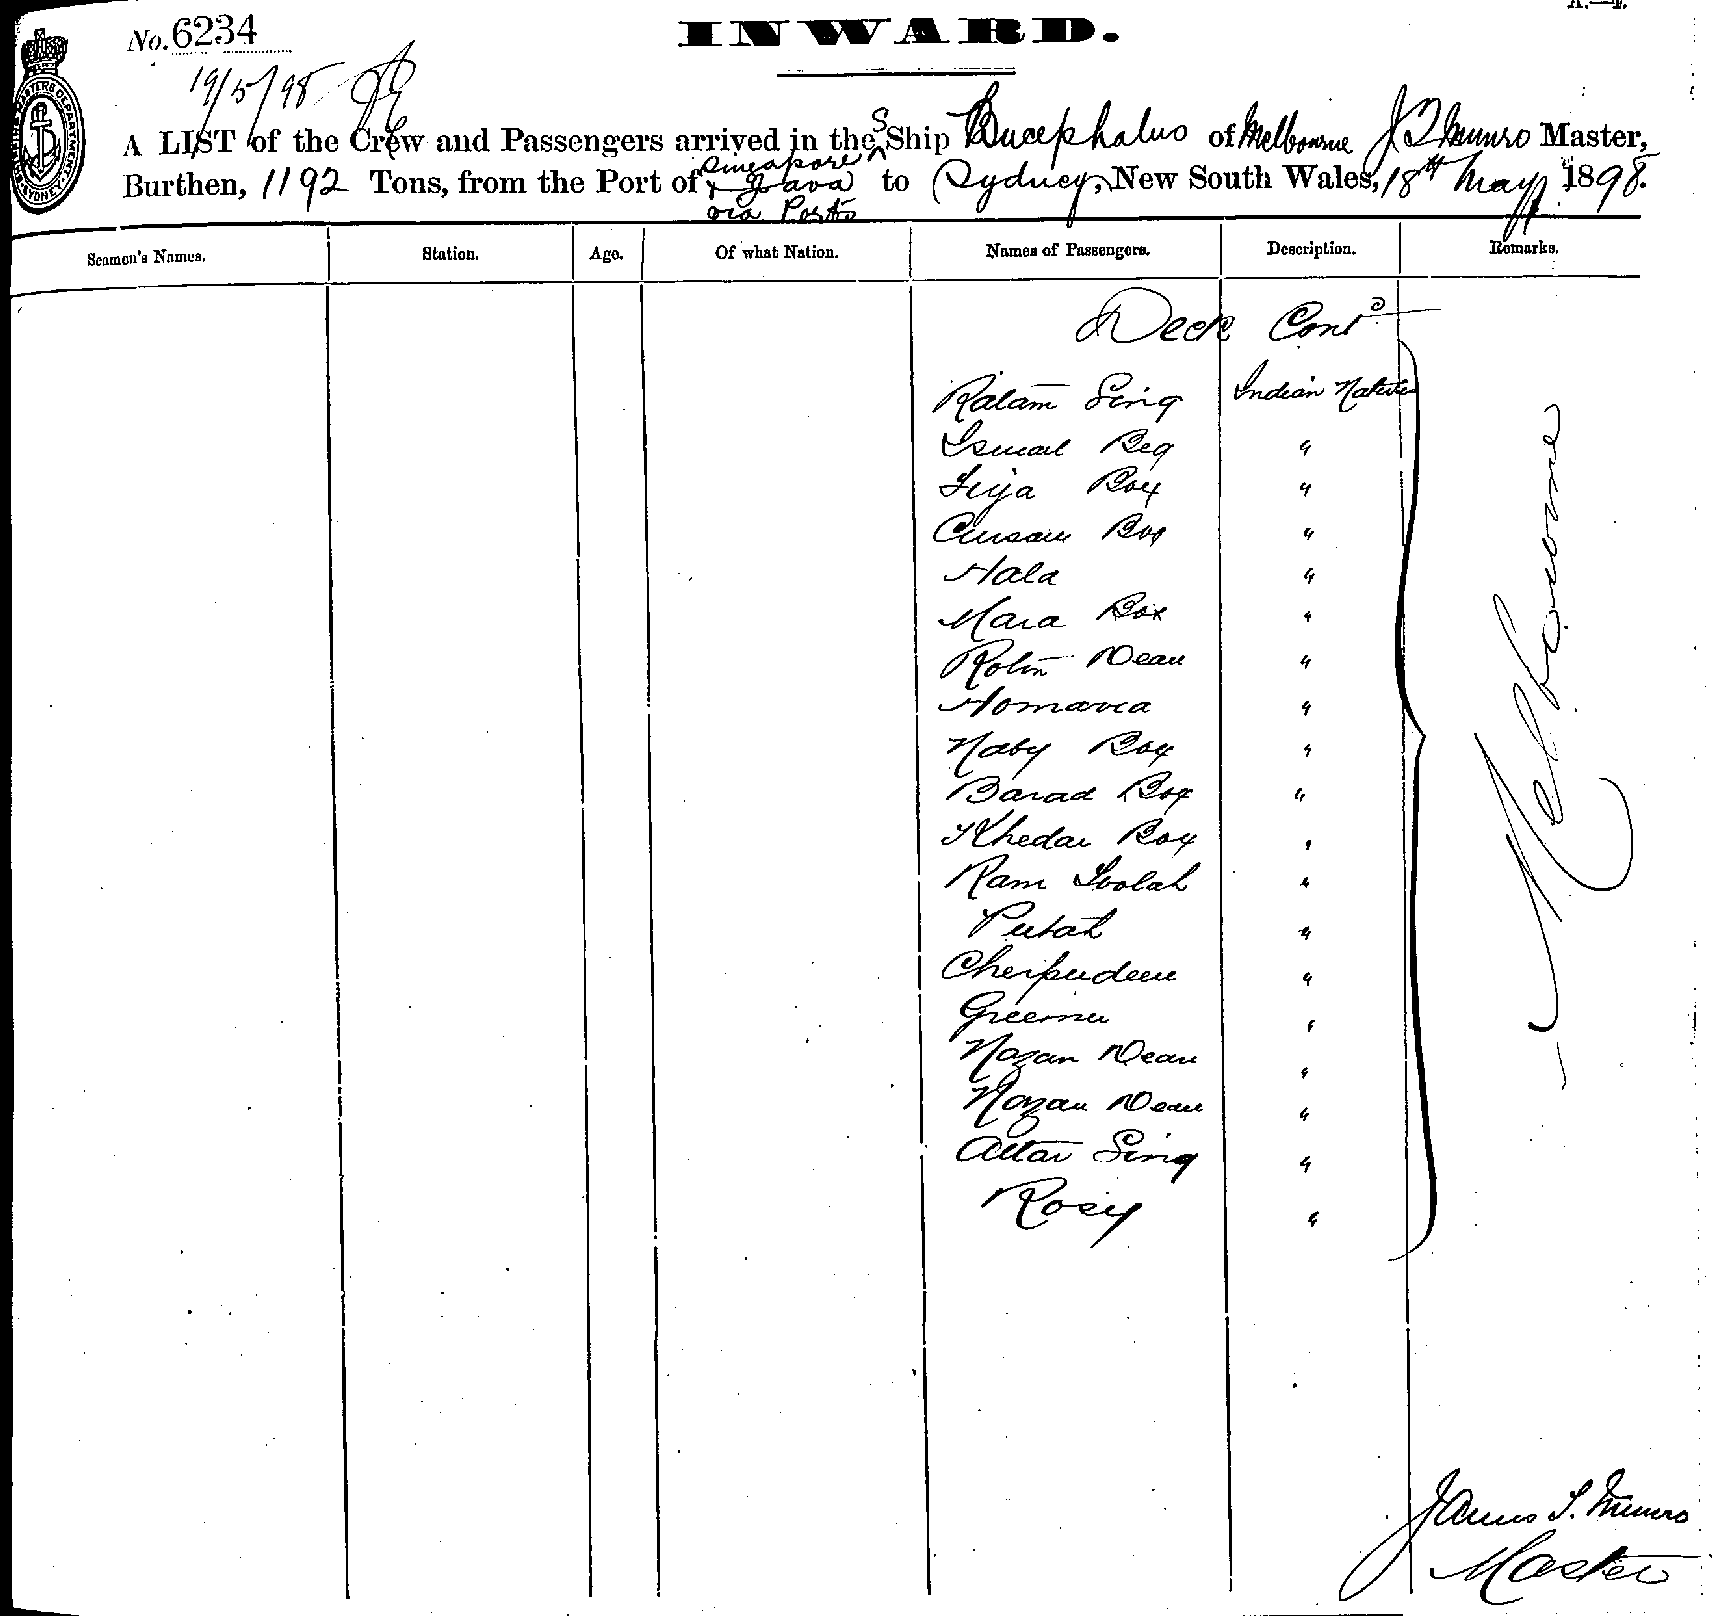 No. 6234
INWARD.
19/5/98
A LIST of the Crew and Passengers arrived in the S Ship Bucephalus of Melbourne J T Munro Master,
Burthen, 1192 Tons, from the Port of Singapore & Java via Ports to Sydney, New South Wales, 18th May 1898.
Seamen's Names. Station. Age. Of what Nation. Names of Passengers. Description. Remarks.
Deck Contd
Ralam Sing Indian Natives
Ismail Beg "
Box "
Box "
Hala "
Mara Box "
Robin Dean "
Nomavia "
Naby Box "
Barad Box "
Khedar Box "
Ram "
Putah "
Cherpudeen "
"
Nazan Dean "
Nozan Dean "
Attar Sing "
Rosy "
Melbourne
James T. Munro
Master